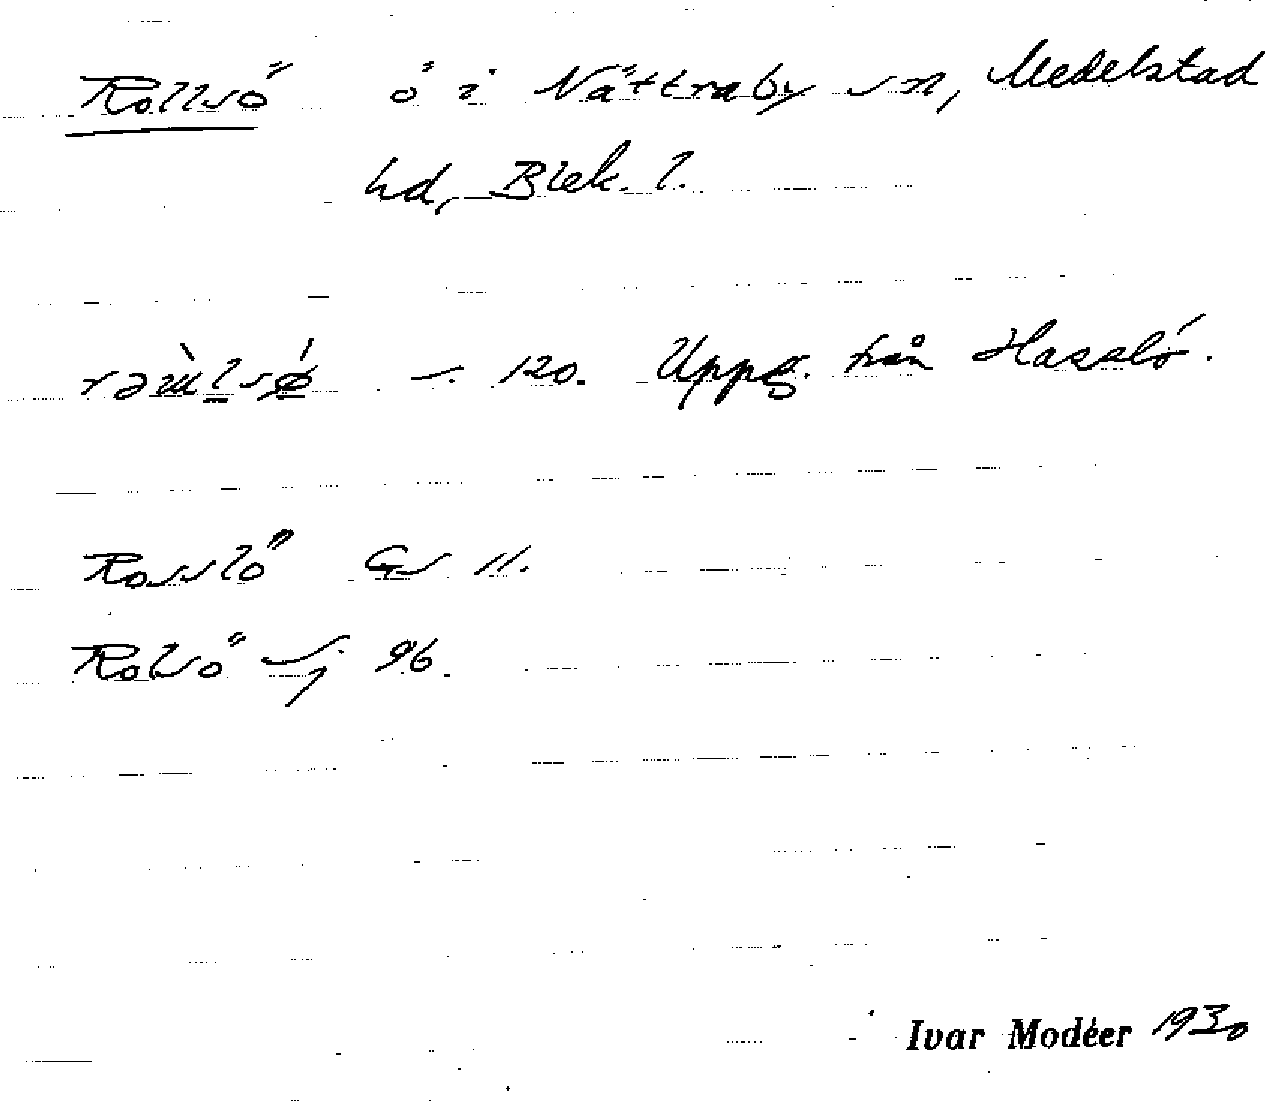 Rollsö ö i Nättraby sn, Medelstad
hd, Blek. l.
120. Uppg. från Hasslö.
Rossö Gs 11.
Rolsö sj 96.
Ivar Modéer 1930